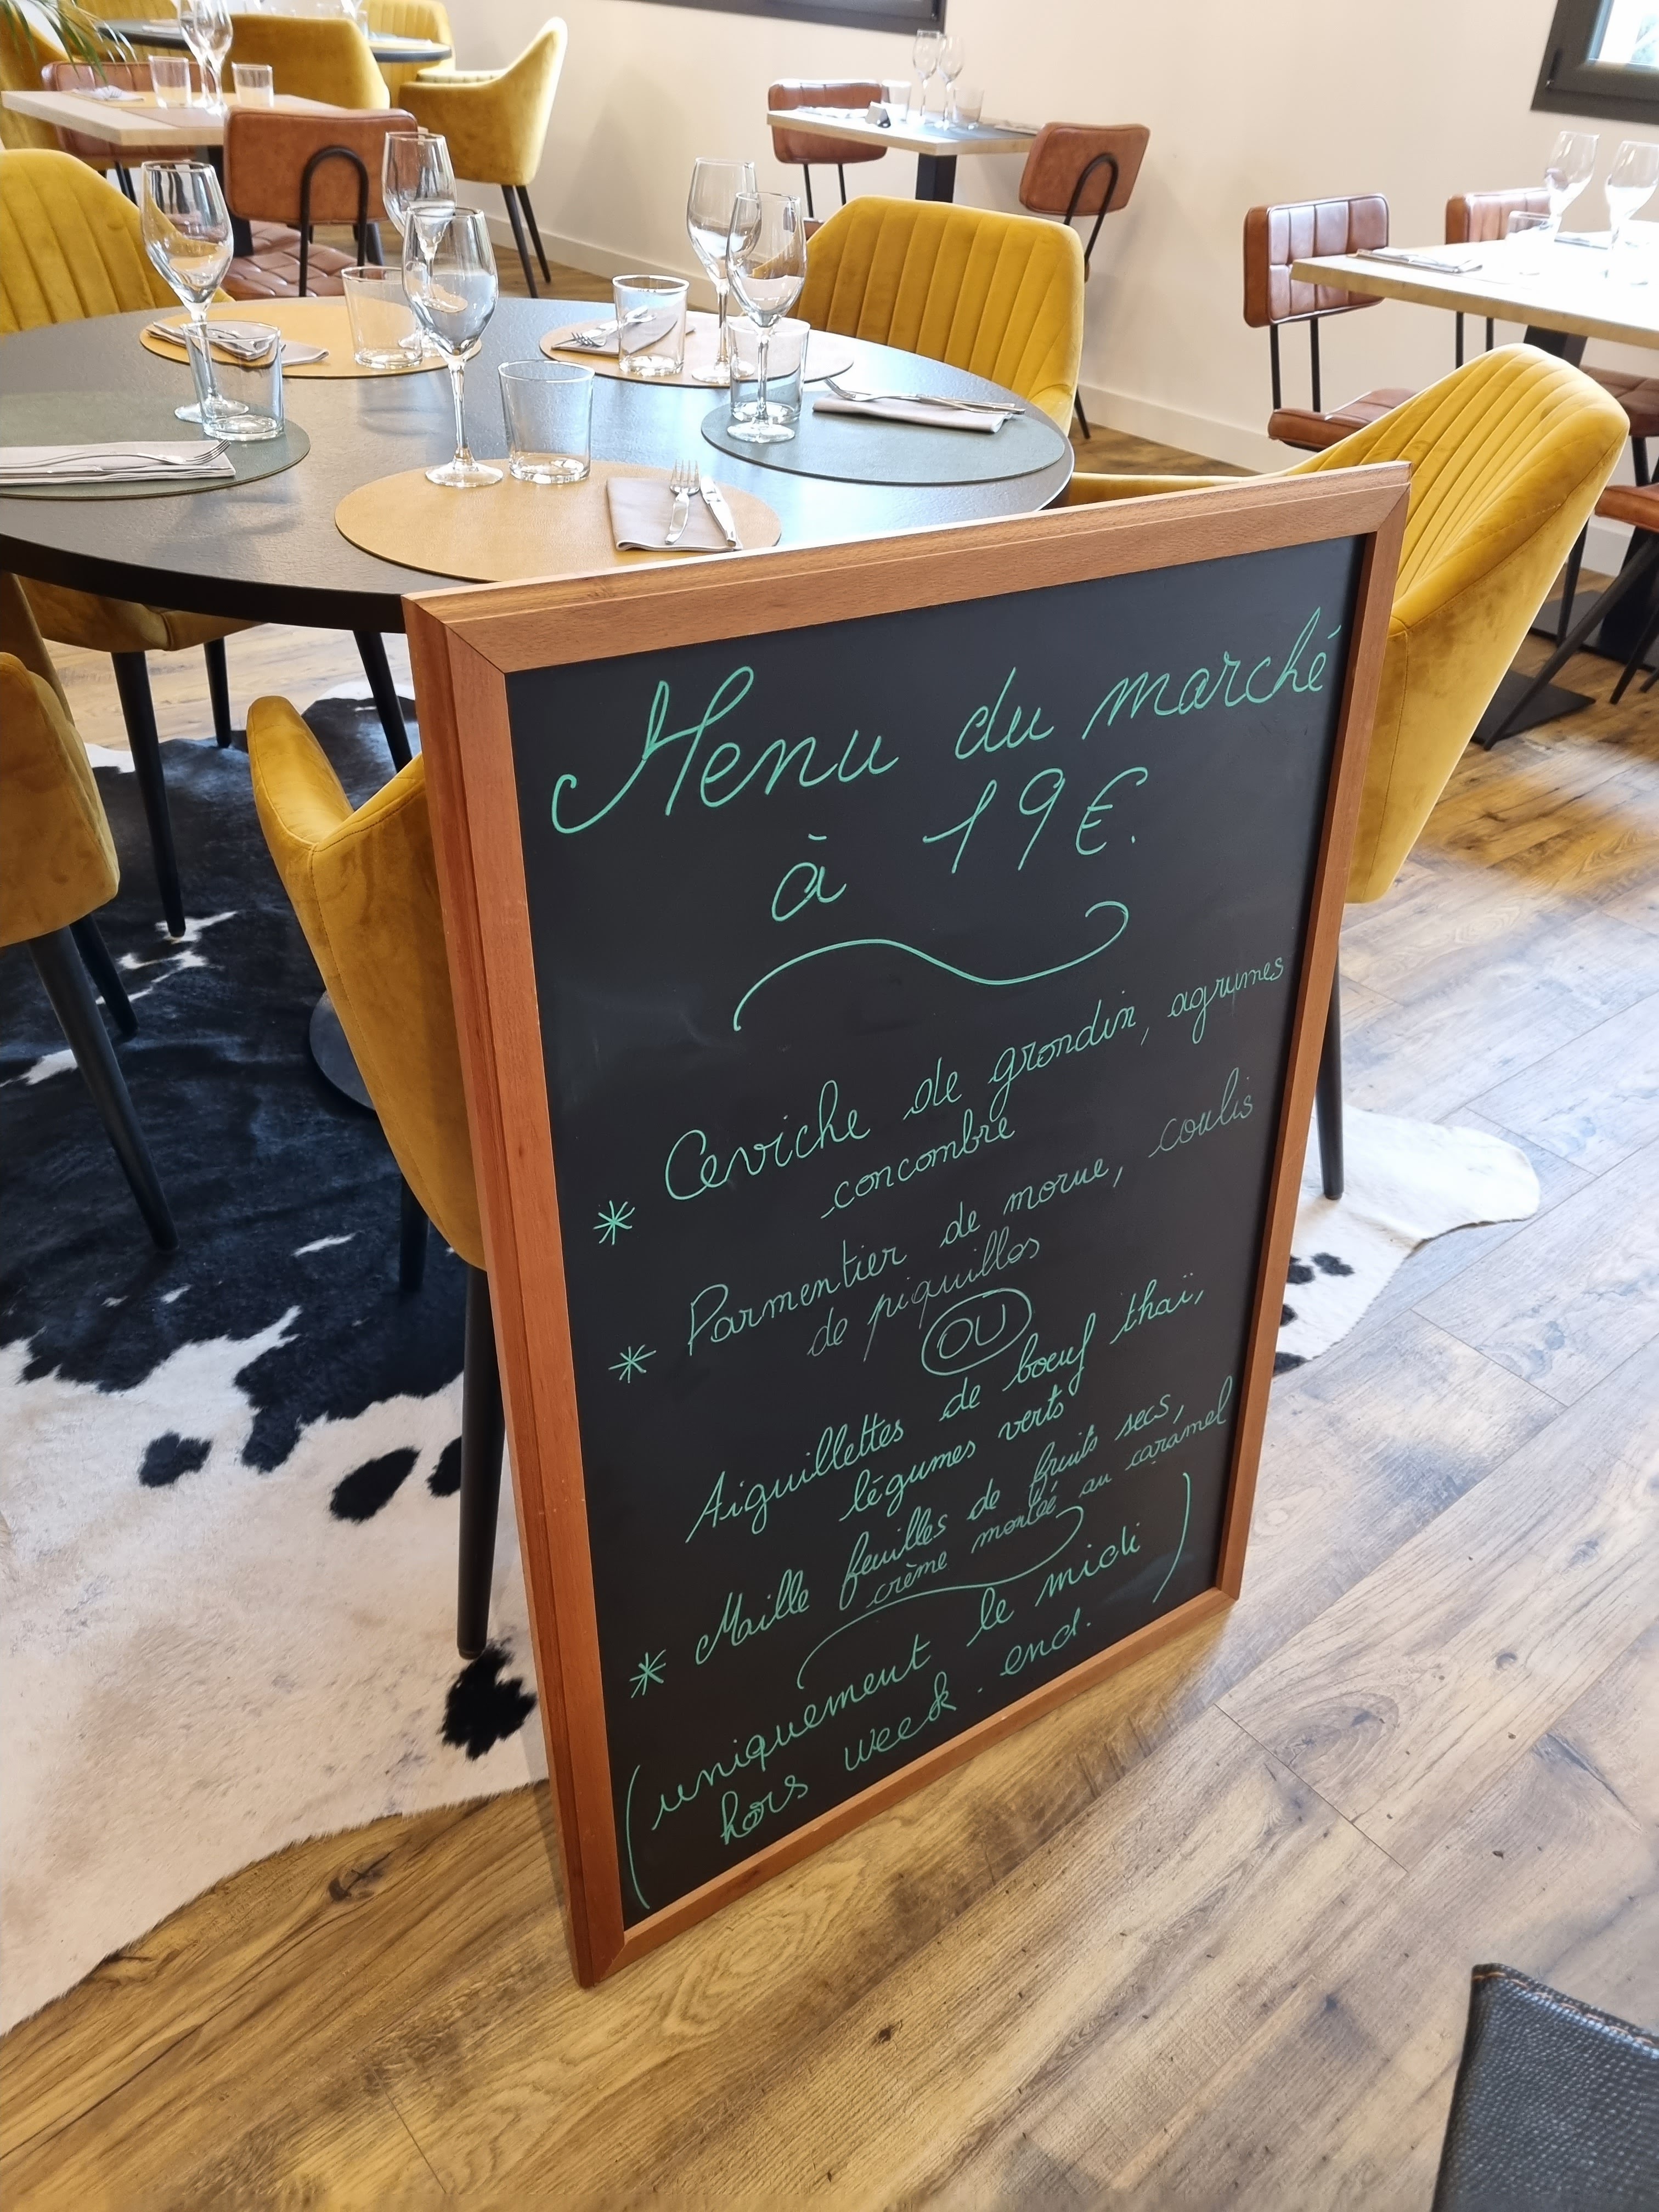 Menu du marché
à 19€.
* Ceviche de grondin, agrumes
concombre
* Parmentier de morue, coulis
de piquillos
OU
Aiguillettes de boeuf thaï,
légumes verts
* Maille feuilles de fruits secs,
crème montée au caramel
(uniquement le midi
hors week-end.)